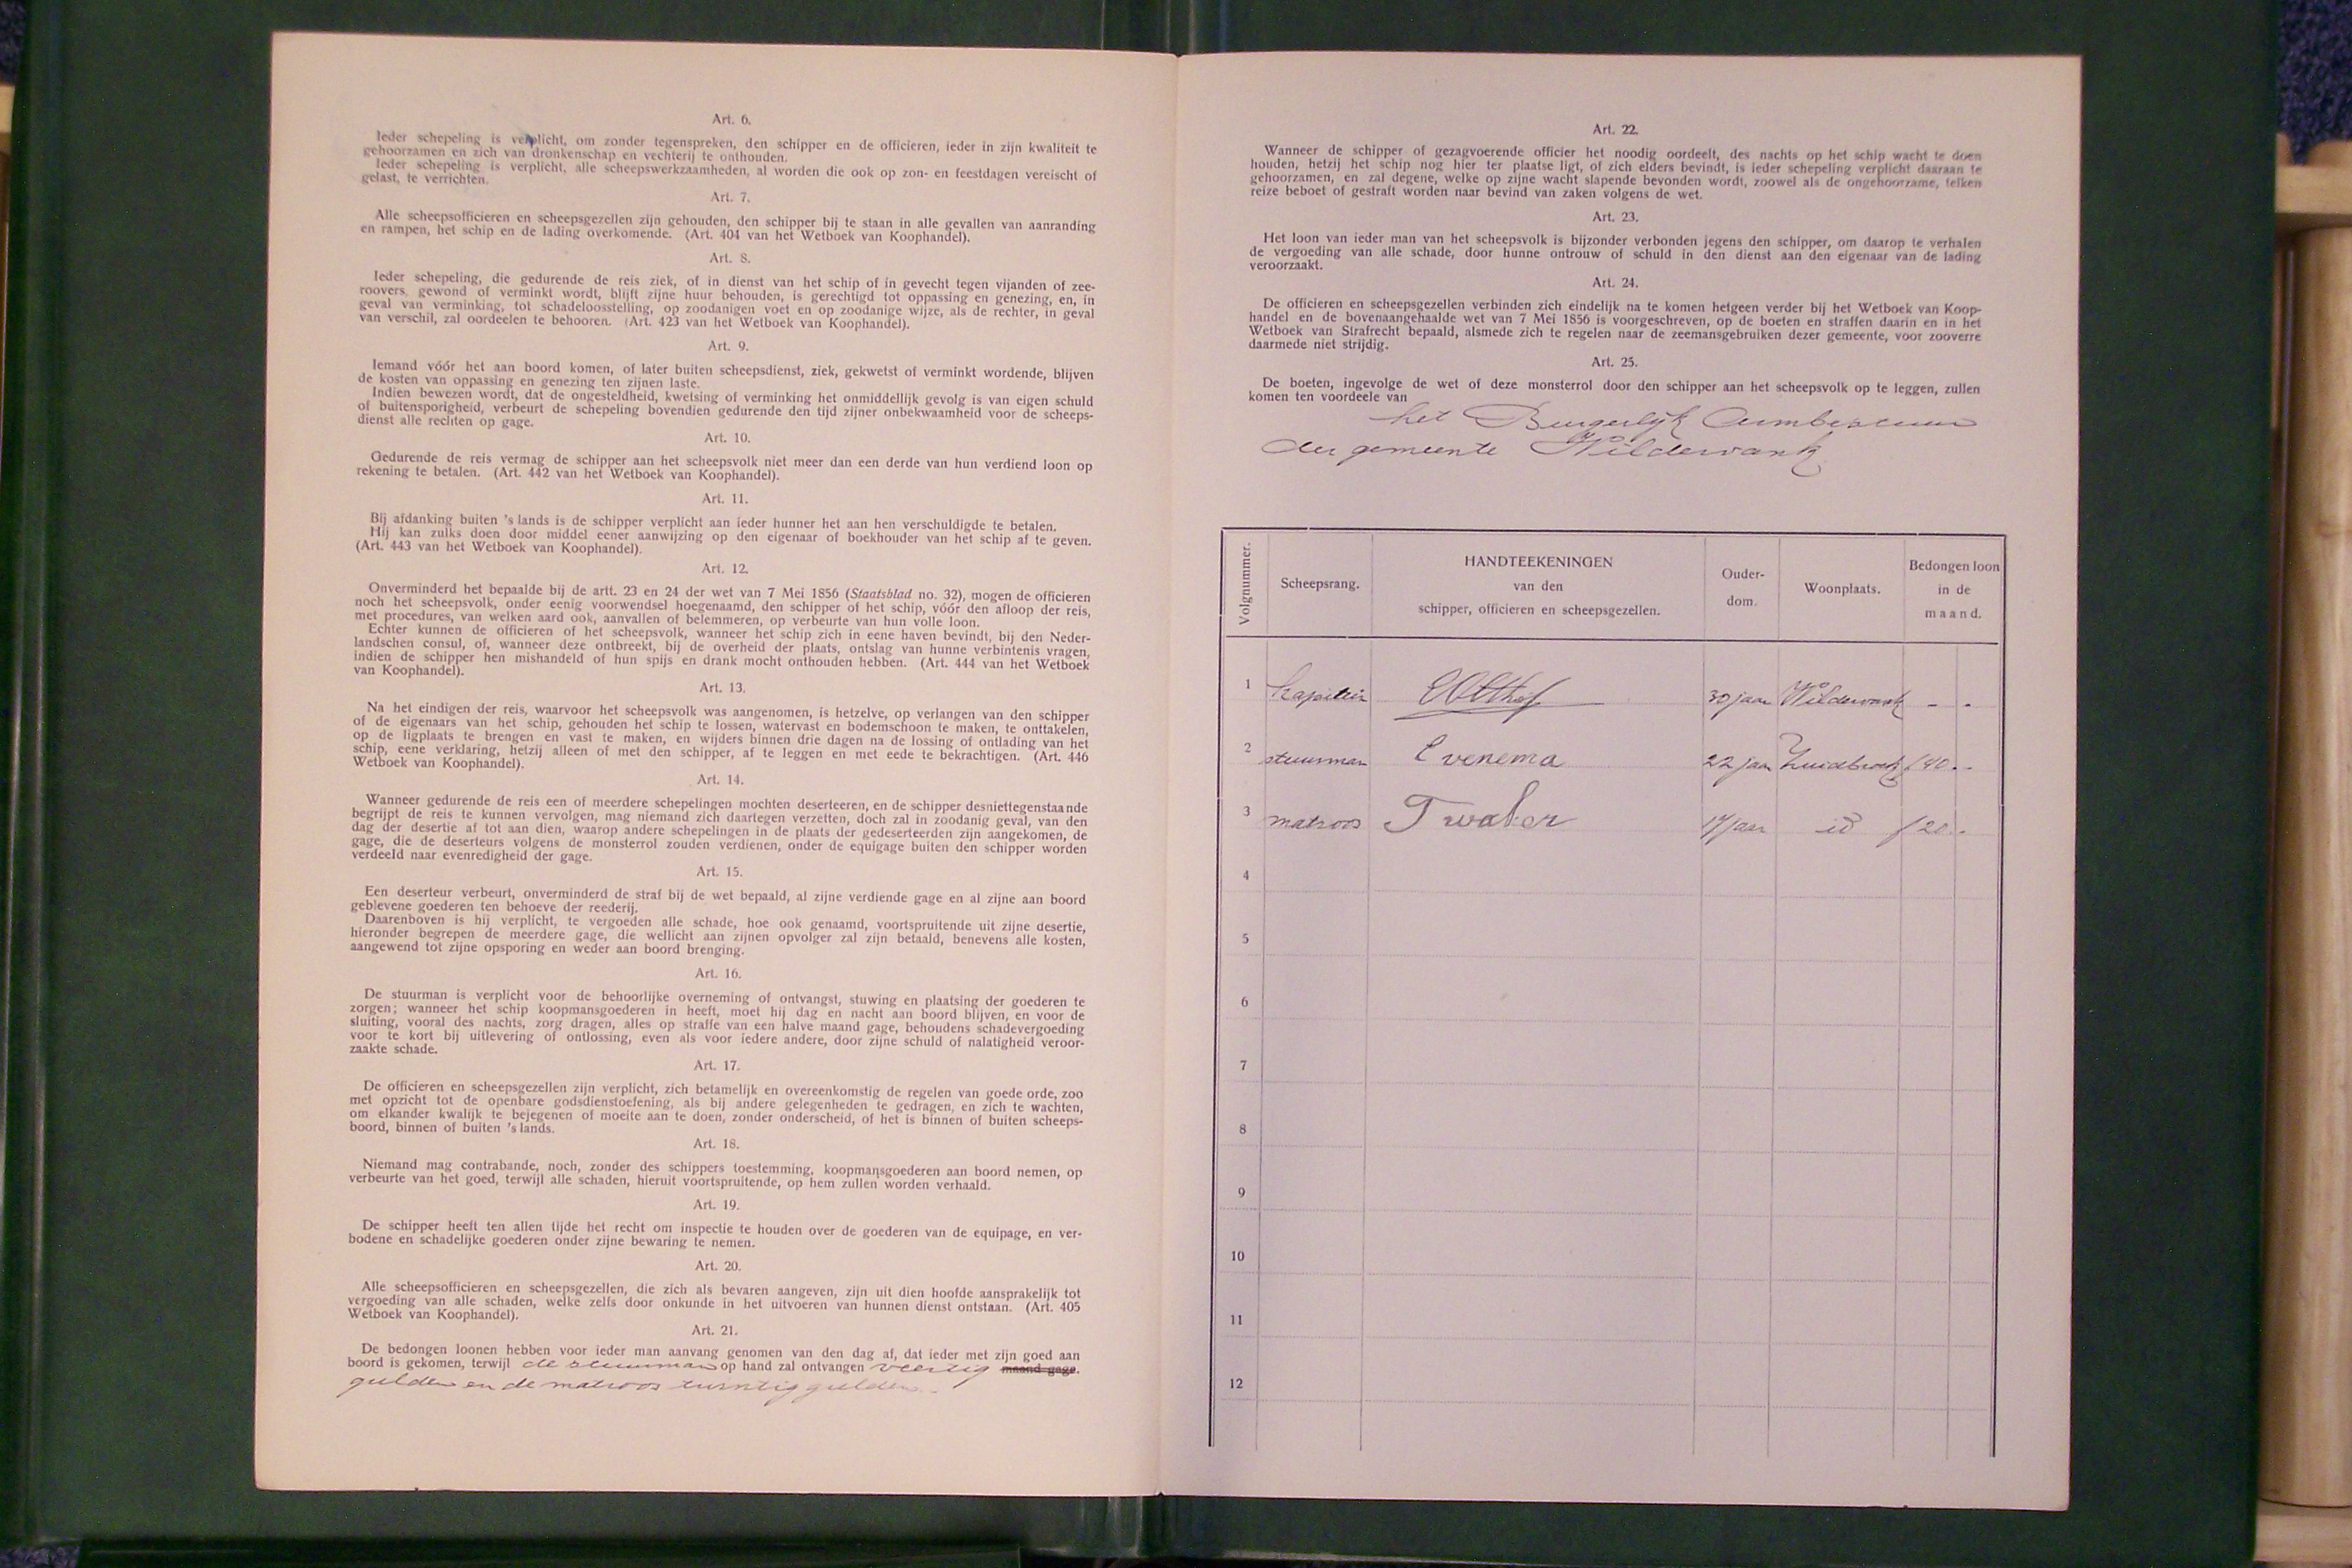 Art. 6.
Ieder schepeling is verplicht, om zonder tegenspreken, den schipper en de officieren, ieder in zijn kwaliteit te
gehoorzamen en zich van dronkenschap en vechterij te onthouden.
Ieder schepeling is verplicht, alle scheepswerkzaamheden, al worden die ook op zon- en feestdagen vereischt of
gelast, te verrichten.
Art. 7.
Alle scheepsofficieren en scheepsgezellen zijn gehouden, den schipper bij te staan in alle gevallen van aanranding
en rampen, het schip en de lading overkomende. (Art. 404 van het Wetboek van Koophandel).
Art. 8.
Ieder schepeling, die gedurende de reis ziek, of in dienst van het schip of in gevecht tegen vijanden of zee-
roovers, gewond of verminkt wordt, blijft zijne huur behouden, is gerechtigd tot oppassing en genezing, en, in
geval van verminking, tot schadeloosstelling, op zoodanigen voet en op zoodanige wijze, als de rechter, in geval
van verschil, zal oordeelen te behooren. (Art. 423 van het Wetboek van Koophandel).
Art. 9.
Iemand vóór het aan boord komen, of later buiten scheepsdienst, ziek, gekwetst of verminkt wordende, blijven
de kosten van oppassing en genezing ten zijnen laste.
Indien bewezen wordt, dat de ongesteldheid, kwetsing of verminking het onmiddellijk gevolg is van eigen schuld
of buitensporigheid, verbeurt de schepeling bovendien gedurende den tijd zijner onbekwaamheid voor de scheeps-
dienst alle rechten op gage.
Art. 10.
Gedurende de reis vermag de schipper aan het scheepsvolk niet meer dan een derde van hun verdiend loon op
rekening te betalen. (Art. 442 van het Wetboek van Koophandel).
Art. 11.
Bij afdanking buiten 's lands is de schipper verplicht aan ieder hunner het aan hen verschuldigde te betalen.
Hij kan zulks doen door middel eener aanwijzing op den eigenaar of boekhouder van het schip af te geven.
(Art. 443 van het Wetboek van Koophandel).
Art. 12.
Onverminderd het bepaalde bij de artt. 23 en 24 der wet van 7 Mei 1856 (Staatsblad no. 32), mogen de officieren
noch het scheepsvolk, onder eenig voorwendsel hoegenaamd, den schipper of het schip, vóór den afloop der reis,
met procedures, van welken aard ook, aanvallen of belemmeren, op verbeurte van hun volle loon.
Echter kunnen de officieren of het scheepsvolk, wanneer het schip zich in eene haven bevindt, bij den Neder-
landschen consul, of, wanneer deze ontbreekt, bij de overheid der plaats, ontslag van hunne verbintenis vragen,
indien de schipper hen mishandeld of hun spijs en drank mocht onthouden hebben. (Art. 444 van het Wetboek
van Koophandel).
Art. 13.
Na het eindigen der reis, waarvoor het scheepsvolk was aangenomen, is hetzelve, op verlangen van den schipper
of de eigenaars van het schip, gehouden het schip te lossen, watervast en bodemschoon te maken, te onttakelen,
op de ligplaats te brengen en vast te maken, en wijders binnen drie dagen na de lossing of ontlading van het
schip, eene verklaring, hetzij alleen of met den schipper, af te leggen en met eede te bekrachtigen. (Art. 446
Wetboek van Koophandel).
Art. 14.
Wanneer gedurende de reis een of meerdere schepelingen mochten deserteeren, en de schipper desniettegenstaande
begrijpt de reis te kunnen vervolgen, mag niemand zich daartegen verzetten, doch zal in zoodanig geval, van den
dag der desertie af tot aan dien, waarop andere schepelingen in de plaats der gedeserteerden zijn aangekomen, de
gage, die de deserteurs volgens de monsterrol zouden verdienen, onder de equigage buiten den schipper worden
verdeeld naar evenredigheid der gage.
Art. 15.
Een deserteur verbeurt, onverminderd de straf bij de wet bepaald, al zijne verdiende gage en al zijne aan boord
geblevene goederen ten behoeve der reederij.
Daarenboven is hij verplicht, te vergoeden alle schade, hoe ook genaamd, voortspruitende uit zijne desertie,
hieronder begrepen de meerdere gage, die wellicht aan zijnen opvolger zal zijn betaald, benevens alle kosten,
aangewend tot zijne opsporing en weder aan boord brenging.
Art. 16.
De stuurman is verplicht voor de behoorlijke overneming of ontvangst, stuwing en plaatsing der goederen te
zorgen; wanneer het schip koopmansgoederen in heeft, moet hij dag en nacht aan boord blijven, en voor de
sluiting, vooral des nachts, zorg dragen, alles op straffe van een halve maand gage, behoudens schadevergoeding
voor te kort bij uitlevering of ontlossing, even als voor iedere andere, door zijne schuld of nalatigheid veroor-
zaakte schade.
Art. 17.
De officieren en scheepsgezellen zijn verplicht, zich betamelijk en overeenkomstig de regelen van goede orde, zoo
met opzicht tot de openbare godsdienstoefening, als bij andere gelegenheden te gedragen, en zich te wachten,
om elkander kwalijk te bejegenen of moeite aan te doen, zonder onderscheid, of het is binnen of buiten scheeps-
boord, binnen of buiten 's lands.
Art. 18.
Niemand mag contrabande, noch, zonder des schippers toestemming, koopmansgoederen aan boord nemen, op
verbeurte van het goed, terwijl alle schaden, hieruit voortspruitende, op hem zullen worden verhaald.
Art. 19.
De schipper heeft ten allen tijde het recht om inspectie te houden over de goederen van de equipage, en ver-
bodene en schadelijke goederen onder zijne bewaring te nemen.
Art. 20.
Alle scheepsofficieren en scheepsgezellen, die zich als bevaren aangeven, zijn uit dien hoofde aansprakelijk tot
vergoeding van alle schaden, welke zelfs door onkunde in het uitvoeren van hunnen dienst ontstaan. (Art. 405
Wetboek van Koophandel).
Art. 21.
De bedongen loonen hebben voor ieder man aanvang genomen van den dag af, dat ieder met zijn goed aan
boord is gekomen, terwijl de stuurman op hand zal ontvangen veertig maand gage.
gulden en de matroos twintig gulden.
Art. 22.
Wanneer de schipper of gezagvoerende officier het noodig oordeelt, des nachts op het schip wacht te doen
houden, hetzij het schip nog hier ter plaatse ligt, of zich elders bevindt, is ieder schepeling verplicht daaraan te
gehoorzamen, en zal degene, welke op zijne wacht slapende bevonden wordt, zoowel als de ongehoorzame, telken
reize beboet of gestraft worden naar bevind van zaken volgens de wet.
Art. 23.
Het loon van ieder man van het scheepsvolk is bijzonder verbonden jegens den schipper, om daarop te verhalen
de vergoeding van alle schade, door hunne ontrouw of schuld in den dienst aan den eigenaar van de lading
veroorzaakt.
Art. 24.
De officieren en scheepsgezellen verbinden zich eindelijk na te komen hetgeen verder bij het Wetboek van Koop-
handel en de bovenaangehaalde wet van 7 Mei 1856 is voorgeschreven, op de boeten en straffen daarin en in het
Wetboek van Strafrecht bepaald, alsmede zich te regelen naar de zeemansgebruiken dezer gemeente, voor zooverre
daarmede niet strijdig.
Art. 25.
De boeten, ingevolge de wet of deze monsterrol door den schipper aan het scheepsvolk op te leggen, zullen
komen ten voordeele van
het Burgerlijk Armbestuur
der gemeente Wildervank
Volgnummer. Scheepsrang. HANDTEEKENINGEN van den schipper, officieren en scheepsgezellen. Ouder-dom. Woonplaats. Bedongen loon in de maand.
1 Kapitein 30 jaar Wildervank - -
2 stuurman E venema 22 jaar Zuidbroek f 40 . -
3 matroos T waker 17 jaar id f 20 . -
4
5
6
7
8
9
10
11
12